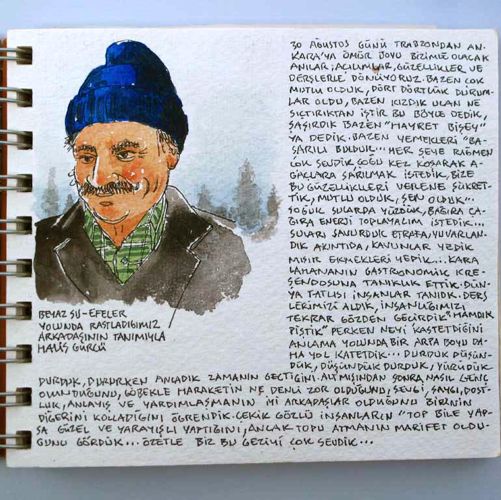 30 AĞUSTOS GÜNÜ TRABZONDAN AN-
KARA'YA ÖMÜR BOYU BİZİMLE OLACAK
ANILAR, AÇILIMLAR, GÜZELLİKLER VE
DERSLERLE DÖNÜYORUZ. BAZEN ÇOK
MUTLU OLDUK, DÖRT DÖRTLÜK DURUM-
LAR OLDU, BAZEN KIZDIK ULAN NE
SIÇTIRIKTAN İŞTİR BU BÖYLE DEDİK,
ŞAŞIRDIK BAZEN "HAYRET BİŞEY"
YA DEDİK. BAZEN YEMEKLERİ "BA-
ŞARILI BULDUK... HER ŞEYE RAĞMEN
ÇOK SEVDİK, ÇOĞU KEZ KOŞARAK A-
ĞAÇLARA SARILMAK İSTEDİK, BİZE
BU GÜZELLİKLERİ VERENE ŞÜKRET-
TİK, MUTLU OLDUK, ŞEN OLDUK...
SOĞUK SULARDA YÜZDÜK, BAĞIRA ÇA-
ĞIRA ENERJİ TOPLAYALIM İSTEDİK...
SULAR SAVURDUK ETRAFA, YUVARLAN-
DIK AKINTIDA, KAVUNLAR YEDİK
MISIR EKMEKLERİ YEDİK... KARA
LAHANANIN GASTRONOMİK KRE-
ŞENDOSUNA TANIKLIK ETTİK. DÜN-
YA TATLISI İNSANLAR TANIDIK. DERS
LERİMİZİ ALDIK, İNSANLIĞIMIZI
TEKRAR GÖZDEN GEÇİRDİK "HAMDIK
PİŞTİK" DERKEN NEYİ KASTETDİĞİNİ
ANLAMA YOLUNDA BİR ARPA BOYU DA-
HA YOL KATETDİK... DURDUK DÜŞÜN-
DÜK, DÜŞÜNDÜK DURDUK, YÜRÜDÜK
BEYAZ SU-EFELER
YOLUNDA RASTLADIĞIMIZ
ARKADAŞININ TANIMIYLA
HALİS GÜRCÜ
DURDUK, DURURKEN ANLADIK ZAMANIN GEÇTİĞİNİ. ALTMIŞINDAN SONRA NASIL GENÇ
OLUNDUĞUNU, GÖBEKLE HAREKETİN NE DENLİ ZOR OLDUĞUNU, SEVGİ, SAYGI, DOST-
LUK, ANLAYIŞ VE YARDIMLAŞMANIN Mİ ARKADAŞLAR OLDUĞUNU BİRİNİN
DİĞERİNİ KOLLADIĞINI ÖĞRENDİK. ÇEKİK GÖZLÜ İNSANLARIN "TOP BİLE YAP-
SA GÜZEL VE YARAYIŞLI YAPTIĞINI, ANCAK TOPU ATMANIN MARİFET OLDU-
ĞUNU GÖRDÜK... ÖZETLE BİZ BU GEZİYİ ÇOK SEVDİK...